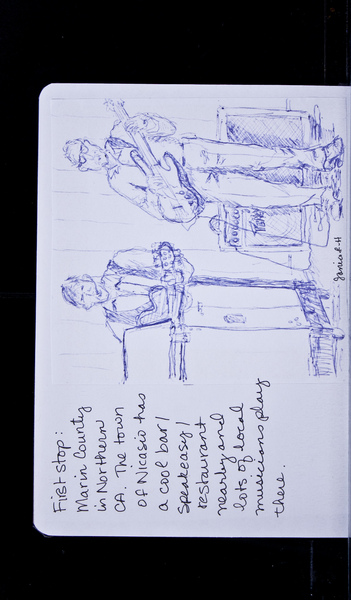 First stop:
Marin County
in Northern
CA. The town
of Nicasio has
a cool bar/
speakeasy/
restaurant
nearby and
lots of local
musicians play
there.